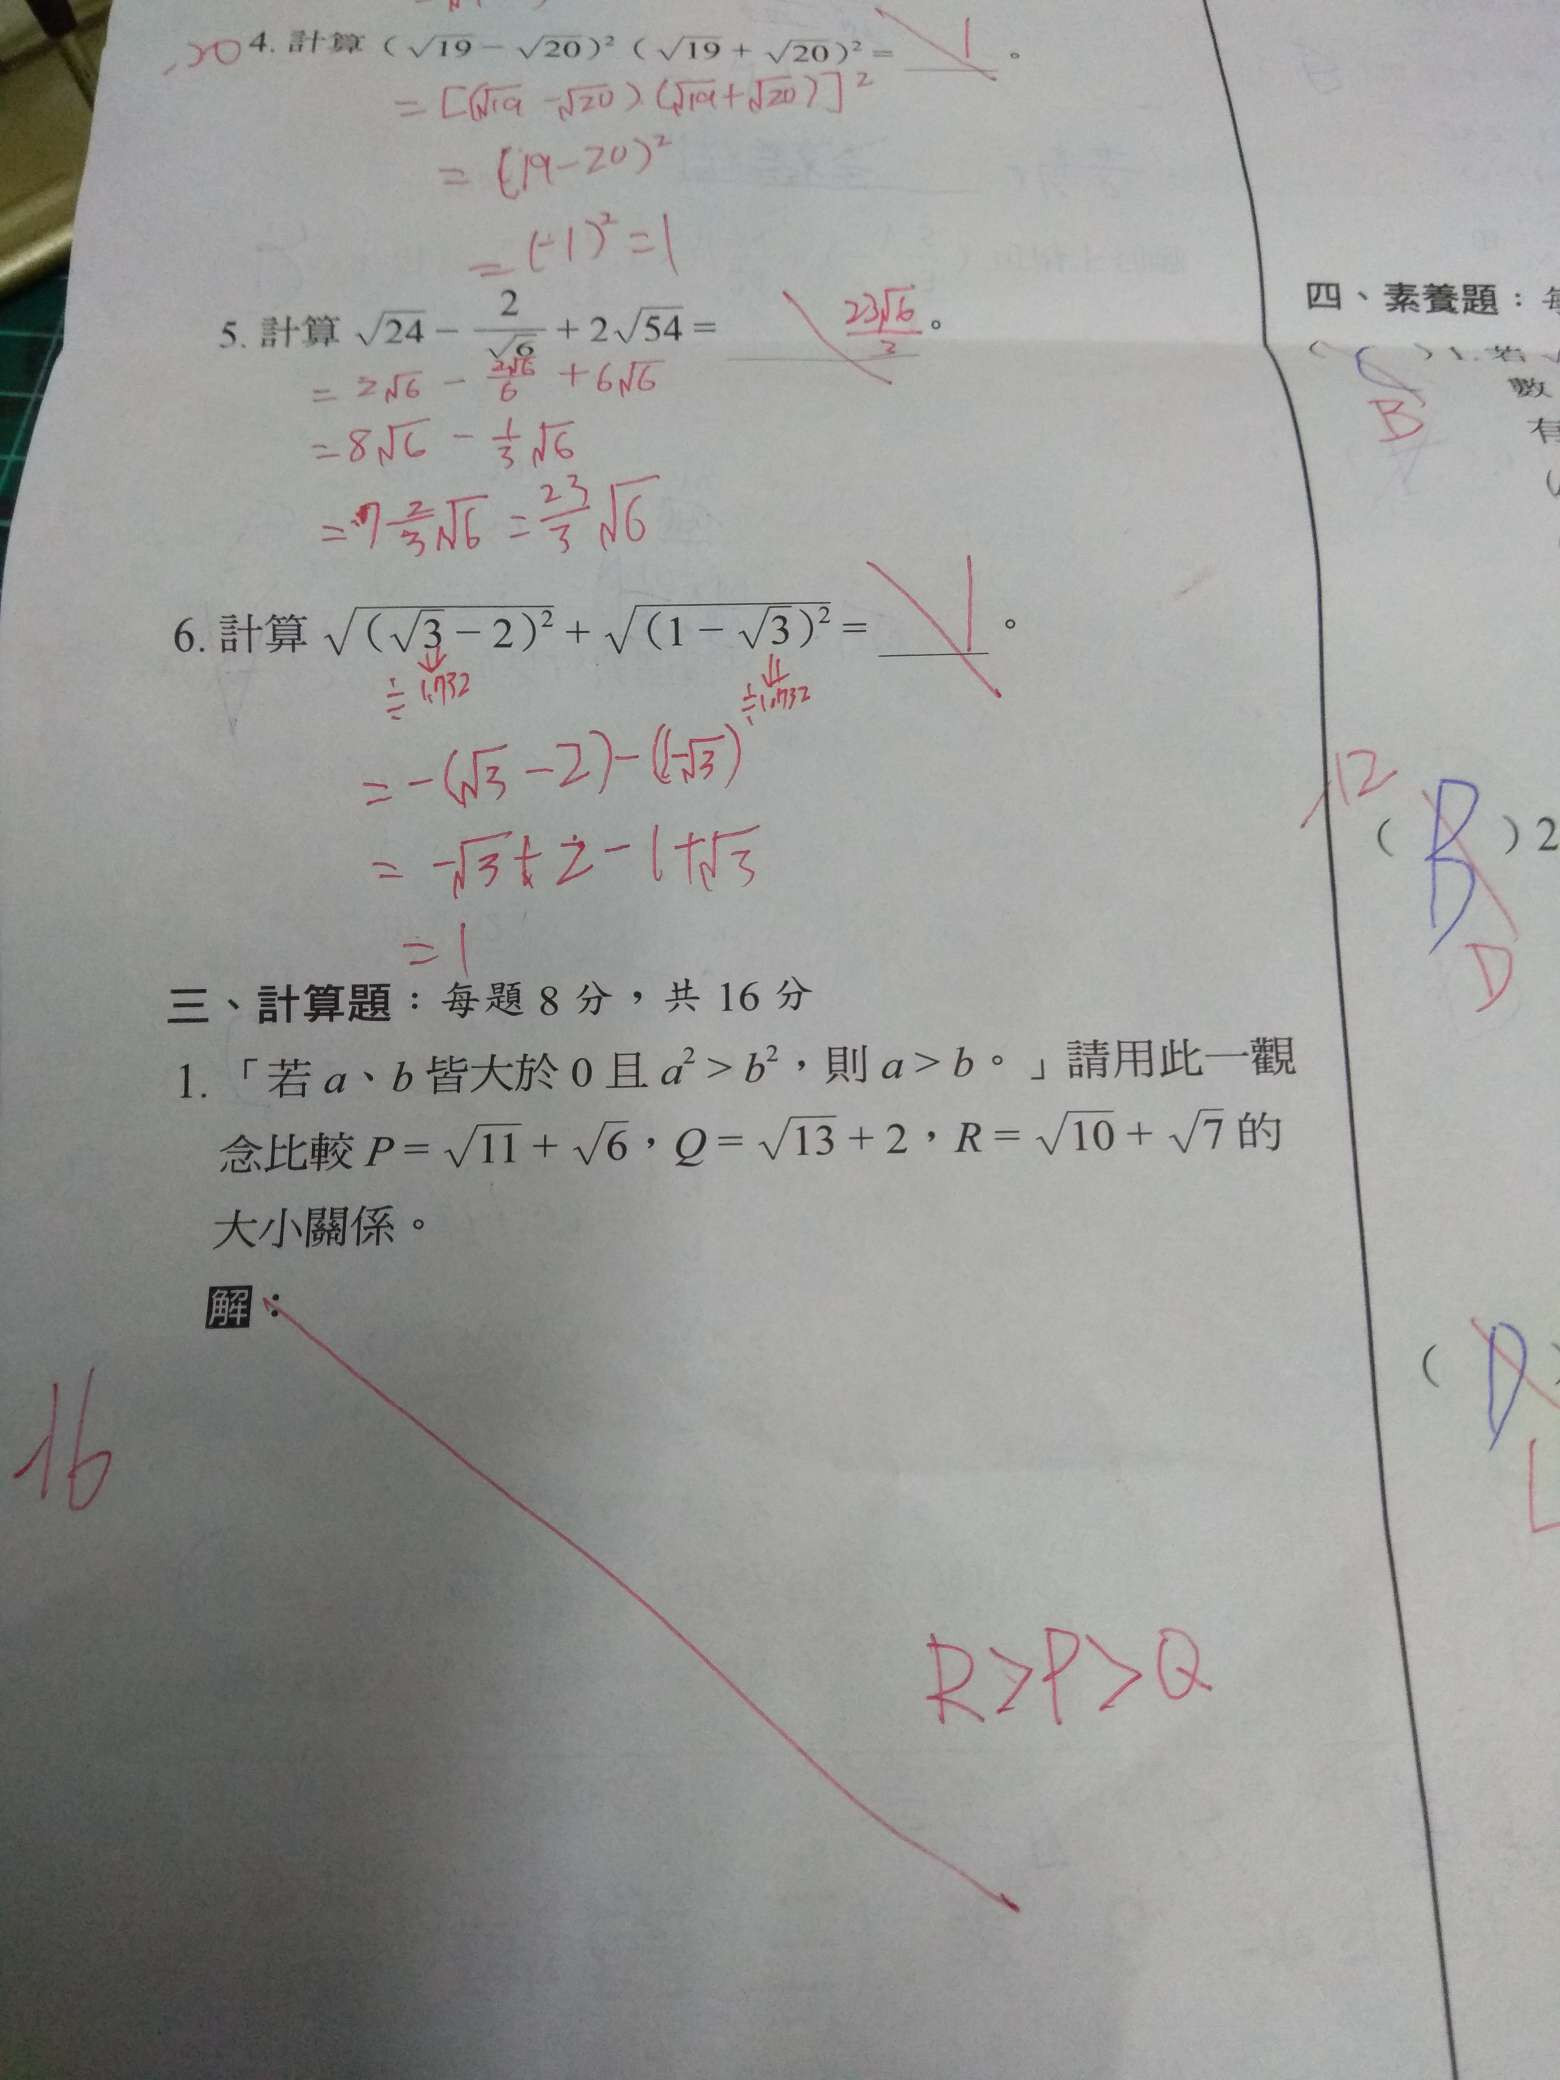 20 4. 計算 (√19 − √20)² (√19 + √20)² = 1 。
= [(√19 − √20) (√19 + √20)]²
= (19−20)²
= (−1)² = 1
5. 計算 √24 − 2/√6 + 2√54 = 23√6/3 。
= 2√6 − 2√6/6 + 6√6
= 8√6 − 1/3 √6
= 7 2/3 √6 = 23/3 √6
6. 計算 √(√3 − 2)² + √(1 − √3)² = 1 。
≒ 1.732 ≒ 1.732
= −(√3 − 2) − (1−√3)
= −√3 + 2 − 1 + √3
= 1
三、計算題：每題 8 分，共 16 分
1. 「若 a、b 皆大於 0 且 a² > b²，則 a > b。」請用此一觀
念比較 P = √11 + √6，Q = √13 + 2，R = √10 + √7 的
大小關係。
解：
16
R > P > Q
四、素養題：每
( C ) 1. 若 √
B
數
有
(
12
( B ) 2
D
( D )